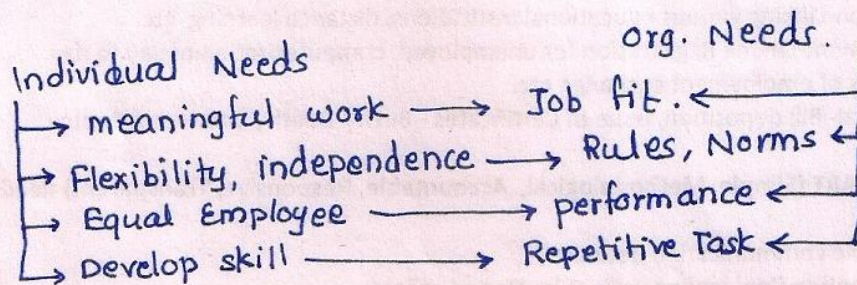 org. Needs.
Individual Needs
→ meaningful work → Job fit. ←
→ Flexibility, independence → Rules, Norms ←
→ Equal Employee → performance ←
→ Develop skill → Repetitive Task ←